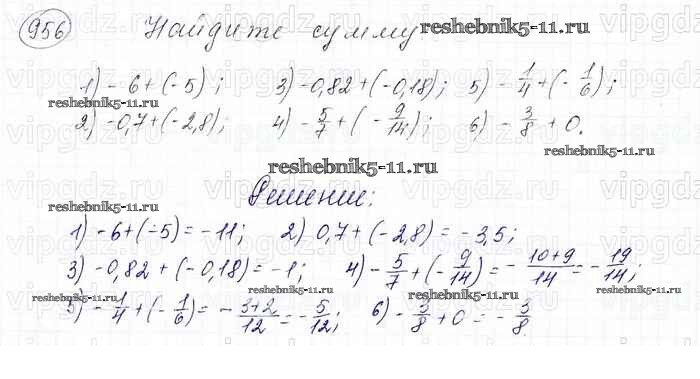 956 Найдите сумму: reshebnik5-11.ru
1) -6+(-5); 3) -0,82+(-0,18); 5) -1/4+(-1/6);
reshebnik5-11.ru
2) -0,7+(-2,8); 4) -5/7+(-9/14); 6) -3/8+0.
reshebnik5-11.ru
reshebnik5-11.ru
Решение:
reshebnik5-11.ru
1) -6+(-5)=-11; 2) 0,7+(-2,8)=-3,5;
3) -0,82+(-0,18)=-1; 4) -5/7+(-9/14)=-10+9/14=-19/14;
reshebnik5-11.ru reshebnik5-11.ru reshebnik5-11.ru
5) -1/4+(-1/6)=-3+2/12=-5/12; 6) -3/8+0=-3/8